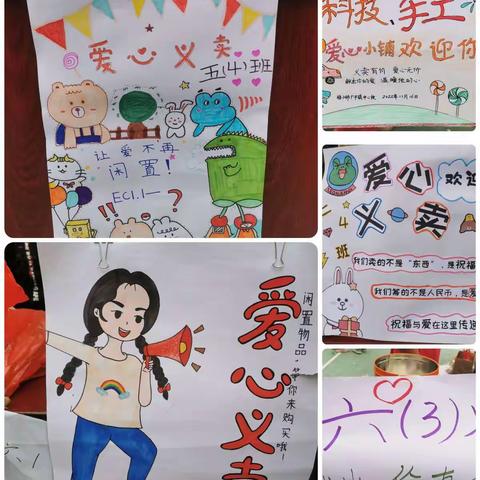 爱心义卖
五(4)班
让爱不再
闲置！
科技、手工
爱心小铺欢迎你
义卖有价 爱心无价
爱心
欢迎
义卖
4
班
我们卖的不是“东西”，是祝福
我们筹的不是人民币，是爱
祝福与爱在这里传递
爱心义卖
闲置物品，等你来购买哦！
六(3)
六